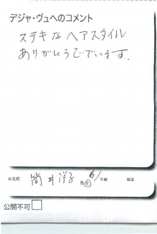 デジャ・ヴュへのコメント
ステキなヘアスタイル
ありがとうございます。
お名前 井 洋子 男 女 年齢 職業
公開不可